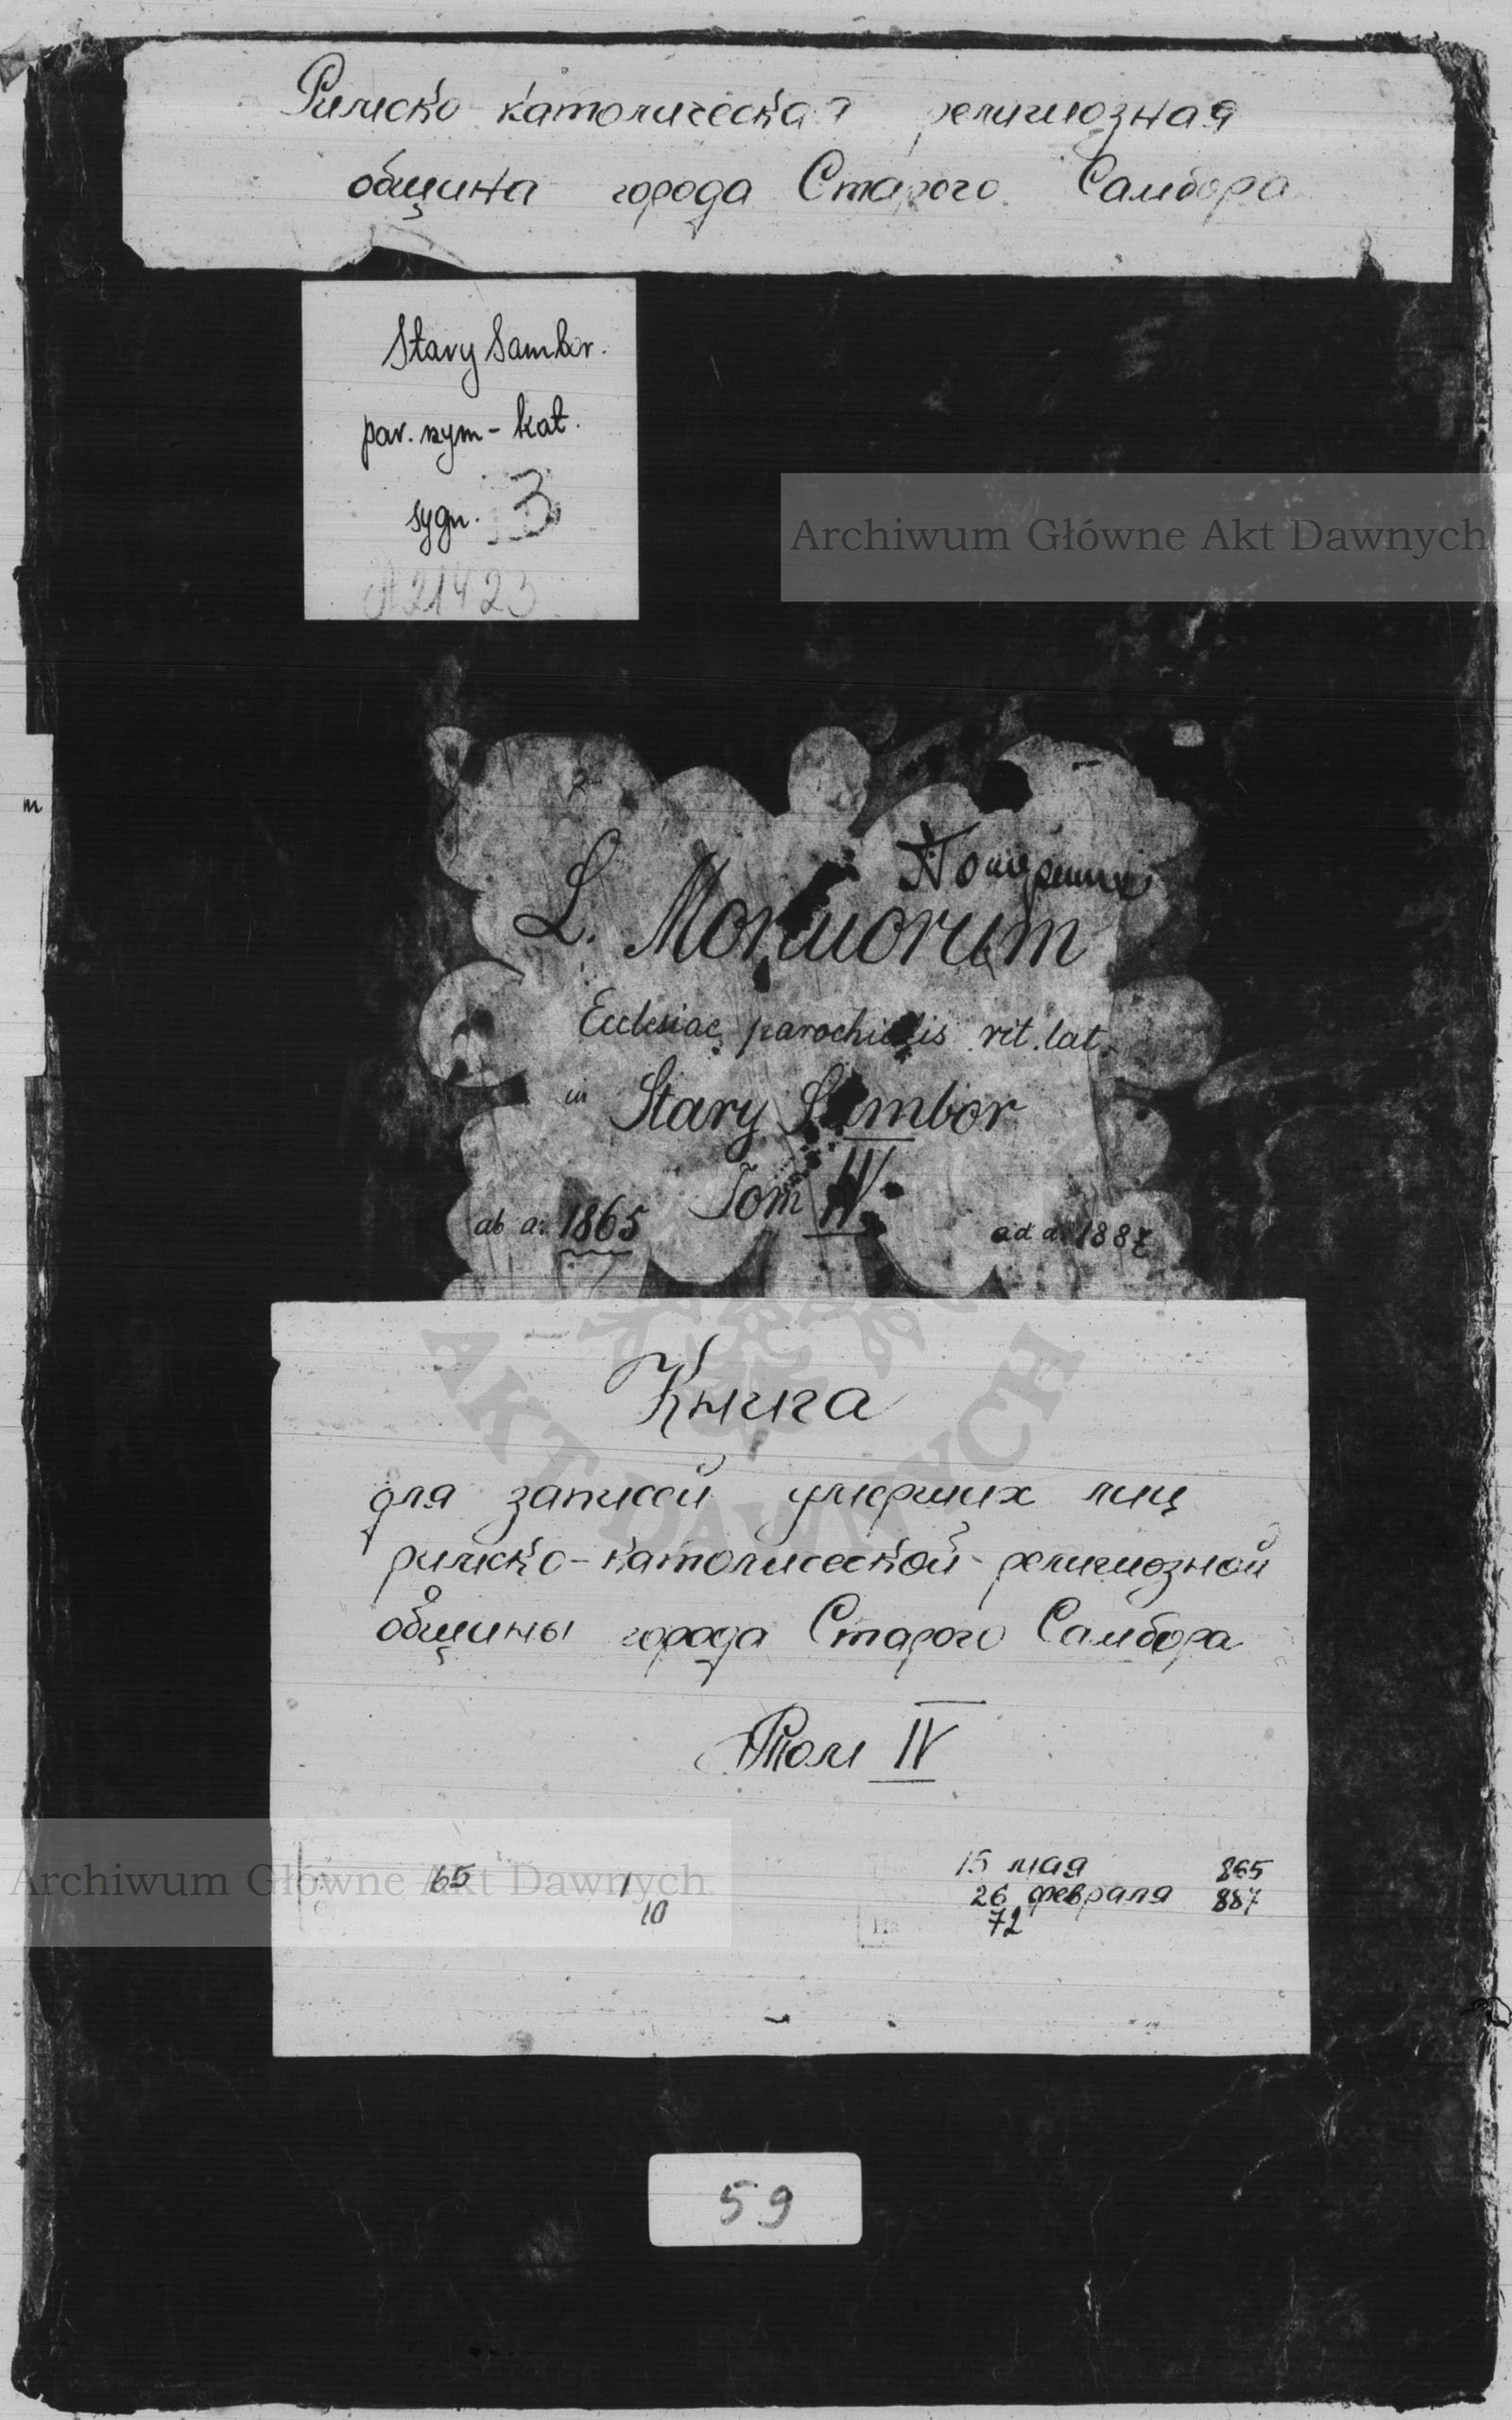 Римско-католическая религиозная
община города Старого Самбора
Stary Sambor.
par. rzym-kat.
sygn. 3
A 21423
Archiwum Główne Akt Dawnych
m
L. Mortuorum
Ecclesiae parochialis rit. lat.
in Stary Sambor
Tom IV.
ab a. 1865 ad a. 1887
Книга
для записей умерших лиц
римско-католической религиозной
общины города Старого Самбора
Том IV
AKT DAWNYCH
Archiwum Główne Akt Dawnych
65 1 15 мая 865
10 26 февраля 887
72
59